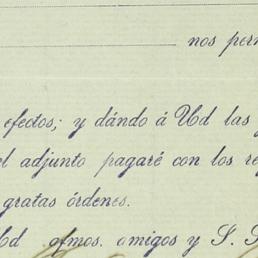 nos
efectos; y dándo á Ud las
adjunto pagaré con los
gratas órdenes.
afmos. amigos y S. S.